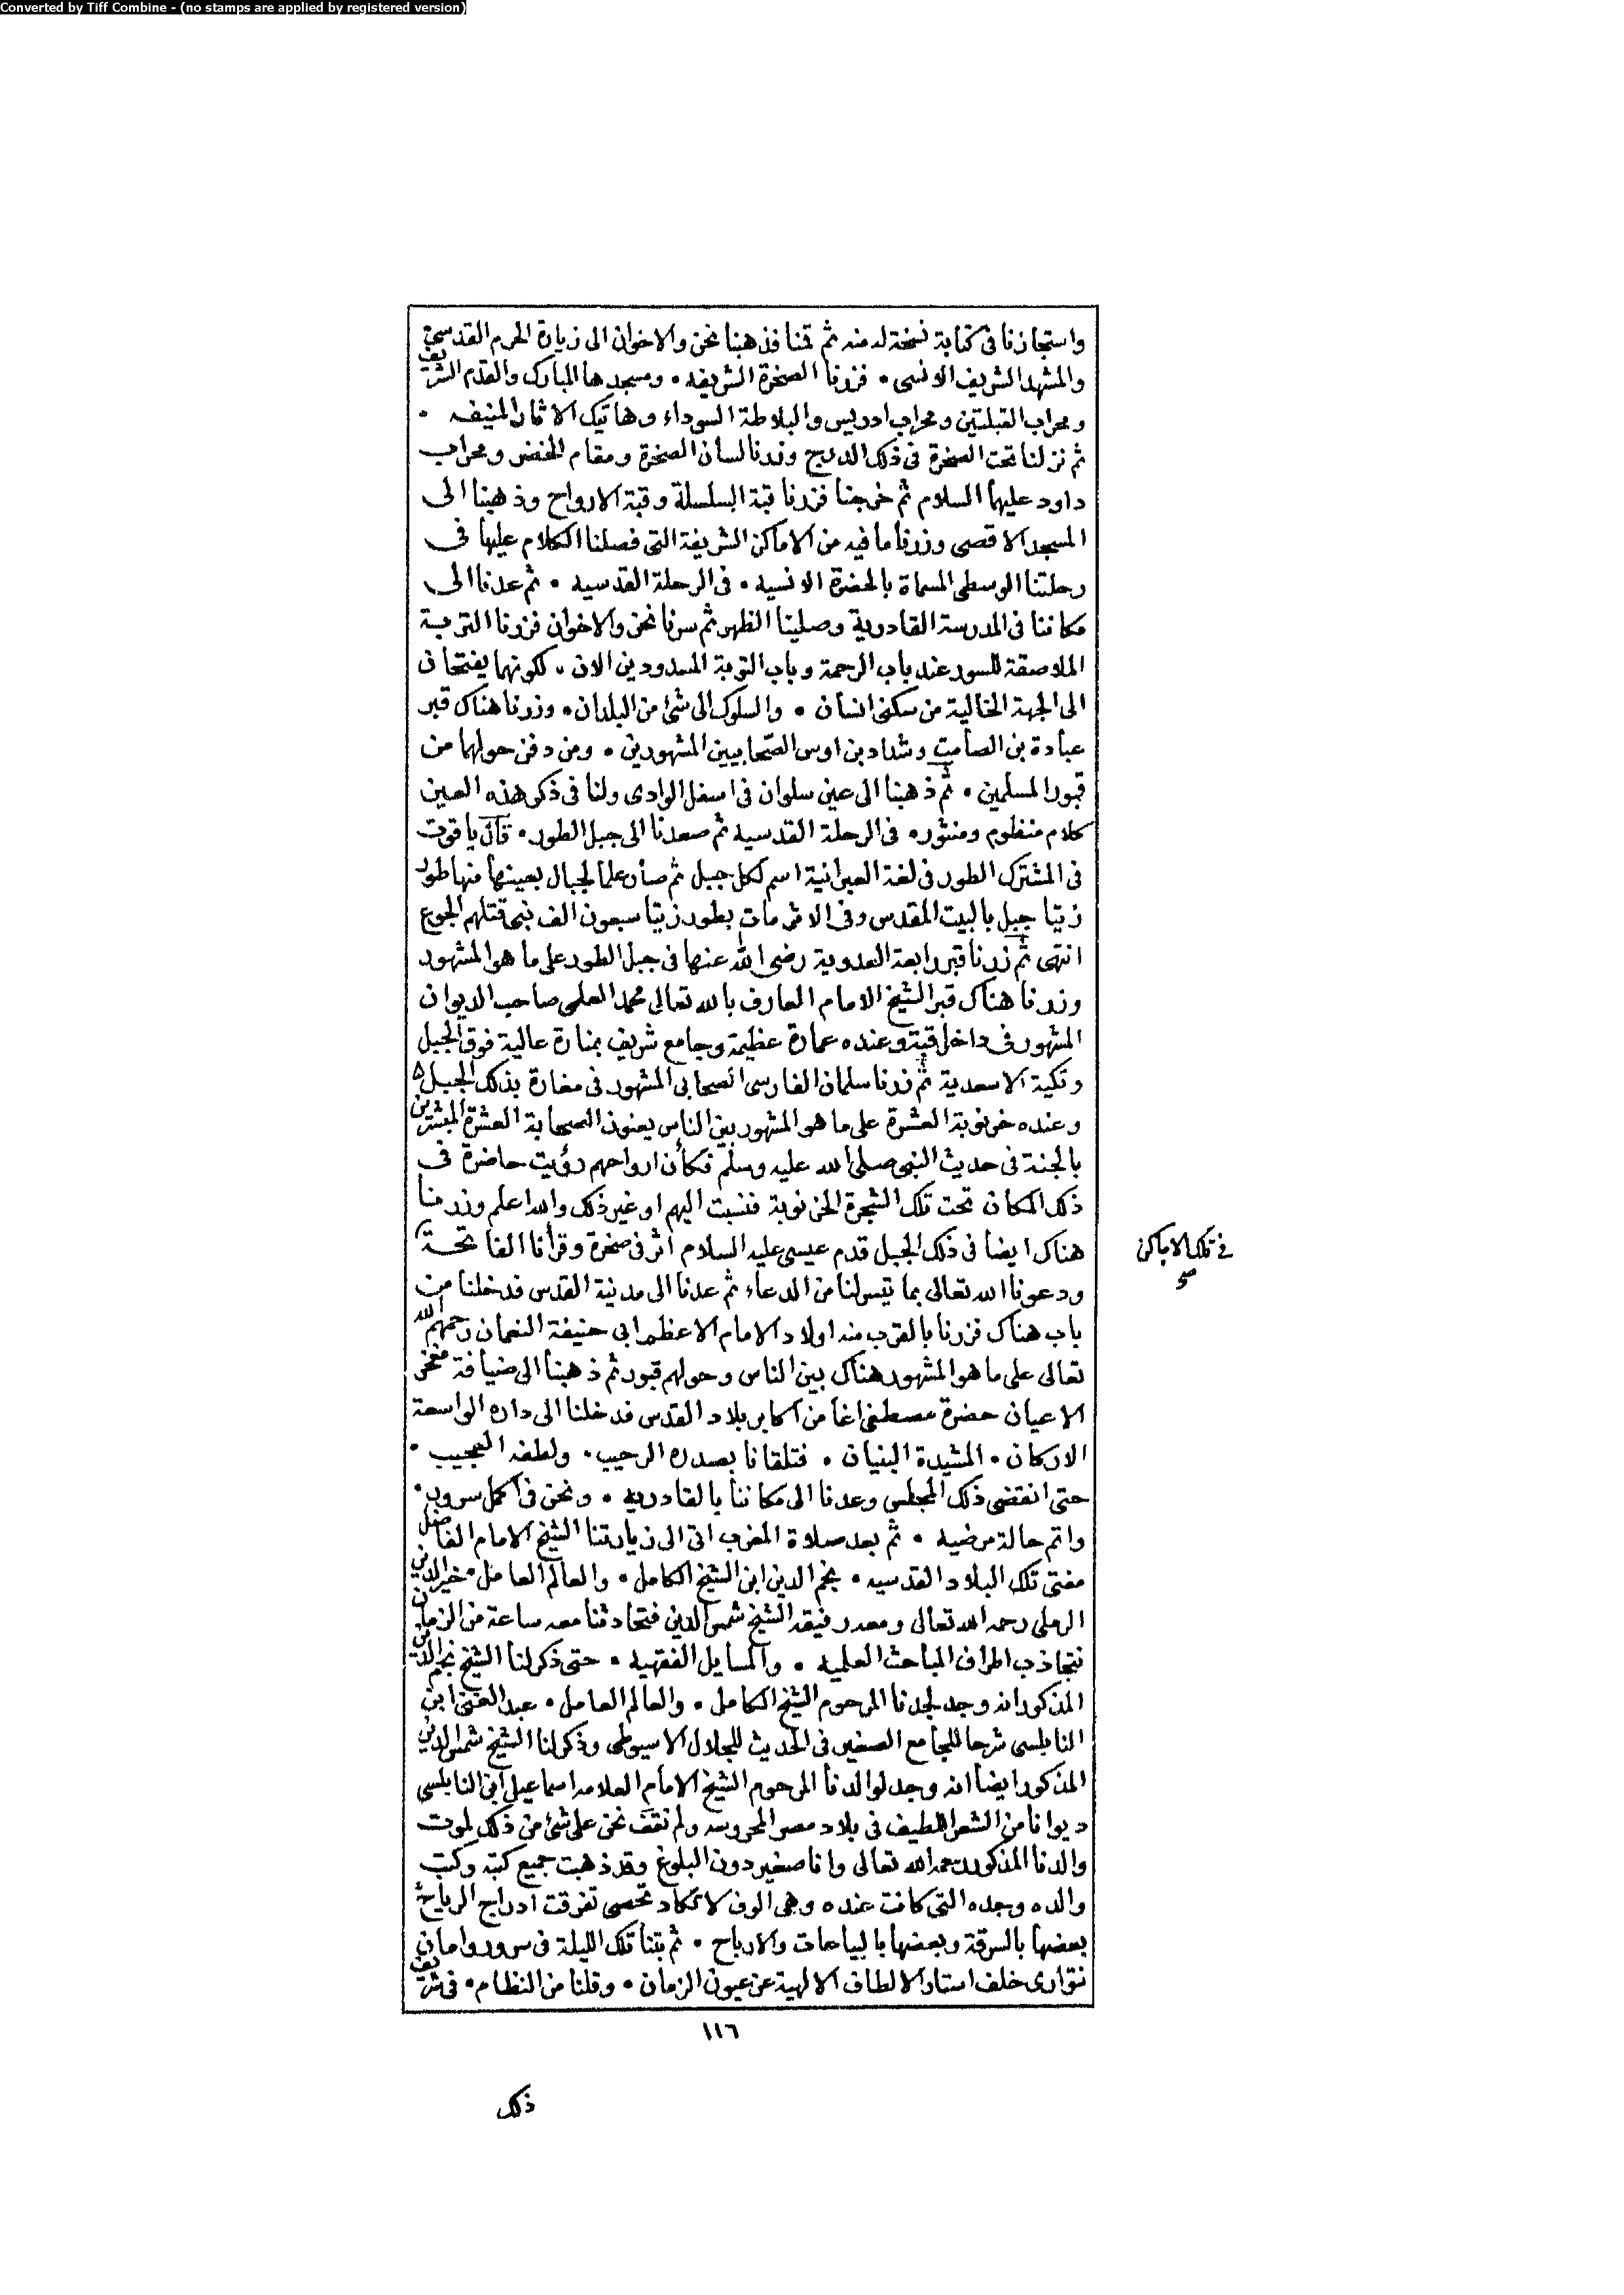 Converted by Tiff Combine - (no stamps are applied by registered version)
واستجازنا فى كتابة نسخة له منه ثم قمنا فذهبنا نحن والاخوان الى زيارة الحرم القدسى
والمشهد الشريف الانسى • فزرنا الصخرة الشريفه • ومسجدها المبارك والقدم الشريف
ومحراب القبلتين ومحراب ادريس والبلاطة السوداء وهاتيك الاثار المنيفه •
ثم نزلنا تحت الصخرة فى ذلك الدرج وزرنا لسان الصخرة ومقام الخضر ومحراب
داود عليهما السلام ثم خرجنا فزرنا قبة السلسلة وقبة الارواح وذهبنا الى
المسجد الاقصى وزرنا ما فيه من الاماكن الشريفة التى فصلنا الكلام عليها فى
رحلتنا الوسطى المسماة بالحضرة الانسيه • فى الرحلة القدسيه • ثم عدنا الى
مكاننا فى المدرسة القادرية وصلينا الظهر ثم سرنا نحن والاخوان فزرنا التربة
الملاصقة للسور عند باب الرحمة وباب التوبة المسدودين الان • لكونهما يفتحان
الى الجهة الخالية من سكنى انسان • والسلوك الى شئ من البلدان • وزرنا هناك قبر
عبادة بن الصامت وشداد بن اوس الصحابيين المشهورين • ومن دفن حولهما من
قبور المسلمين • ثم ذهبنا الى عين سلوان فى اسفل الوادى ولنا فى ذكر هذه العين
كلام منظوم ومنثور • فى الرحلة القدسية ثم صعدنا الى جبل الطور • قال ياقوت
فى المشترك الطور فى لغة العبرانية اسم لكل جبل ثم صار علما لجبال بعينها منها طور
زيتا جبل بالبيت المقدس وفى الاثر مات بطور زيتا سبعون الف نبى قتلهم الجوع
انتهى ثم زرنا قبر رابعة العدوية رضى الله عنها فى جبل الطور على ما هو المشهور
وزرنا هناك قبر الشيخ الامام العارف بالله تعالى محمد العلمى صاحب الديوان
المشهور فى داخل قبة وعنده عمارة عظيمة وجامع شريف بمنارة عالية فوق الجبل
وتكية الاسعدية ثم زرنا سلمان الفارسى الصحابى المشهور فى مغارة بذلك الجبل
وعنده خرنوبة العشرة على ما هو المشهور بين الناس يعنون الصحابة العشرة المبشرين
بالجنة فى حديث النبى صلى الله عليه وسلم فكأن ارواحهم رؤيت حاضرة فى
ذلك المكان تحت تلك الشجرة الخرنوبة فنسبت اليهم او غير ذلك والله اعلم وزرنا
هناك ايضا فى ذلك الجبل قدم عيسى عليه السلام اثر فى صخرة وقرأنا الفاتحة
فى تلك الاماكن
صح
ودعونا الله تعالى بما تيسر لنا من الدعاء ثم عدنا الى مدينة القدس فدخلنا من
باب هناك فزرنا بالقرب منه اولاد الامام الاعظم ابى حنيفة النعمان رحمهم الله
تعالى على ما هو المشهور هناك بين الناس وحولهم قبور ثم ذهبنا الى ضيافة مفخر
الاعيان حضرة مصطفى اغا من اكابر بلاد القدس فدخلنا الى داره الواسعة
الاركان • المشيدة البنيان • فتلقانا بصدره الرحيب • ولطفه العجيب •
حتى انقضى ذلك المجلس وعدنا الى مكاننا بالقادريه • ونحن فى اكمل سرور •
واتم حالة مرضيه • ثم بعد صلاة المغرب اتى الى زيارتنا الشيخ الامام الفاضل
مفتى تلك البلاد القدسيه • نجم الدين ابن الشيخ الكامل • والعالم العامل • خير الدين
الرملى رحمه الله تعالى ومعه رفيقه الشيخ شمس الدين فتحادثنا معه ساعة من الزمان
نتجاذب اطراف المباحث العلميه • والمسايل الفقهيه • حتى ذكر لنا الشيخ نجم الدين
المذكور انه وجد لجدنا المرحوم الشيخ الكامل • والعالم العامل • عبد الغنى ابن
النابلسى شرحا للجامع الصغير فى الحديث للجلال الاسيوطى وذكر لنا الشيخ شمس الدين
المذكور ايضا انه وجد لوالدنا المرحوم الشيخ الامام العلامه اسماعيل ابن النابلسى
ديوانا من الشعر اللطيف فى بلاد مصر المحروسه ولم نقف نحن على شئ من ذلك لموت
والدنا المذكور رحمه الله تعالى وانا صغير دون البلوغ وقد ذهبت جميع كتبه وكتب
والده وجده التى كانت عنده وهى الوف لا تكاد تحصى تفرقت ادراج الرياح
بعضها بالسرقة وبعضها بالبياعات والارباح • ثم بتنا تلك الليلة فى سرور وامان
نتوارى خلف استار الالطاف الالهية عن عيون الزمان • وقلنا من النظام • فى شريف
١١٦
ذلك